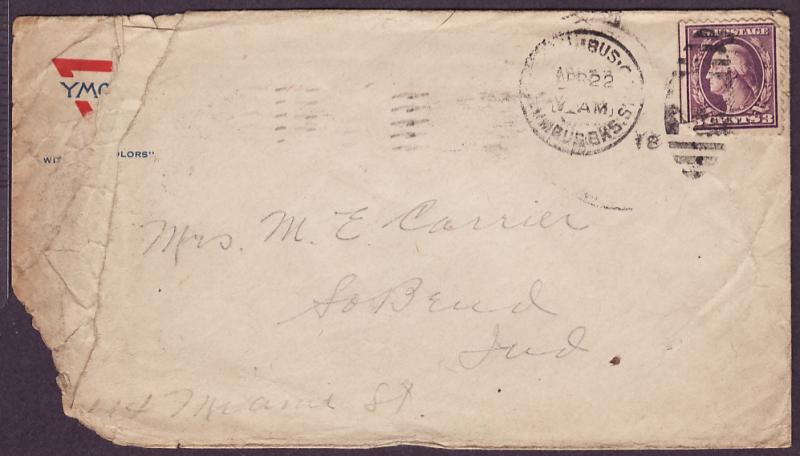 YMC
WIT OLORS"
BUS, O
APR 22
AM
COLUMBUS BKS. S
18
POSTAGE
3 CENTS 3
Mrs. M. E Carrier
So Bend
Ind
114 Miami St.